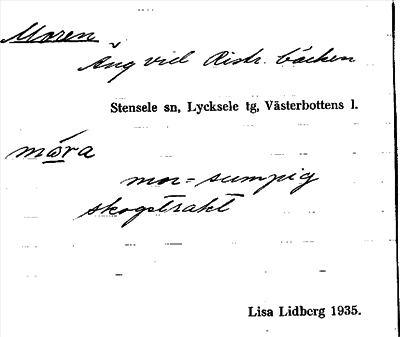 Moren
Äng vid Ristr. bäcken
Stensele sn, Lycksele tg, Västerbottens l.
móra
mor = sumpig
skogstrakt
Lisa Lidberg 1935.